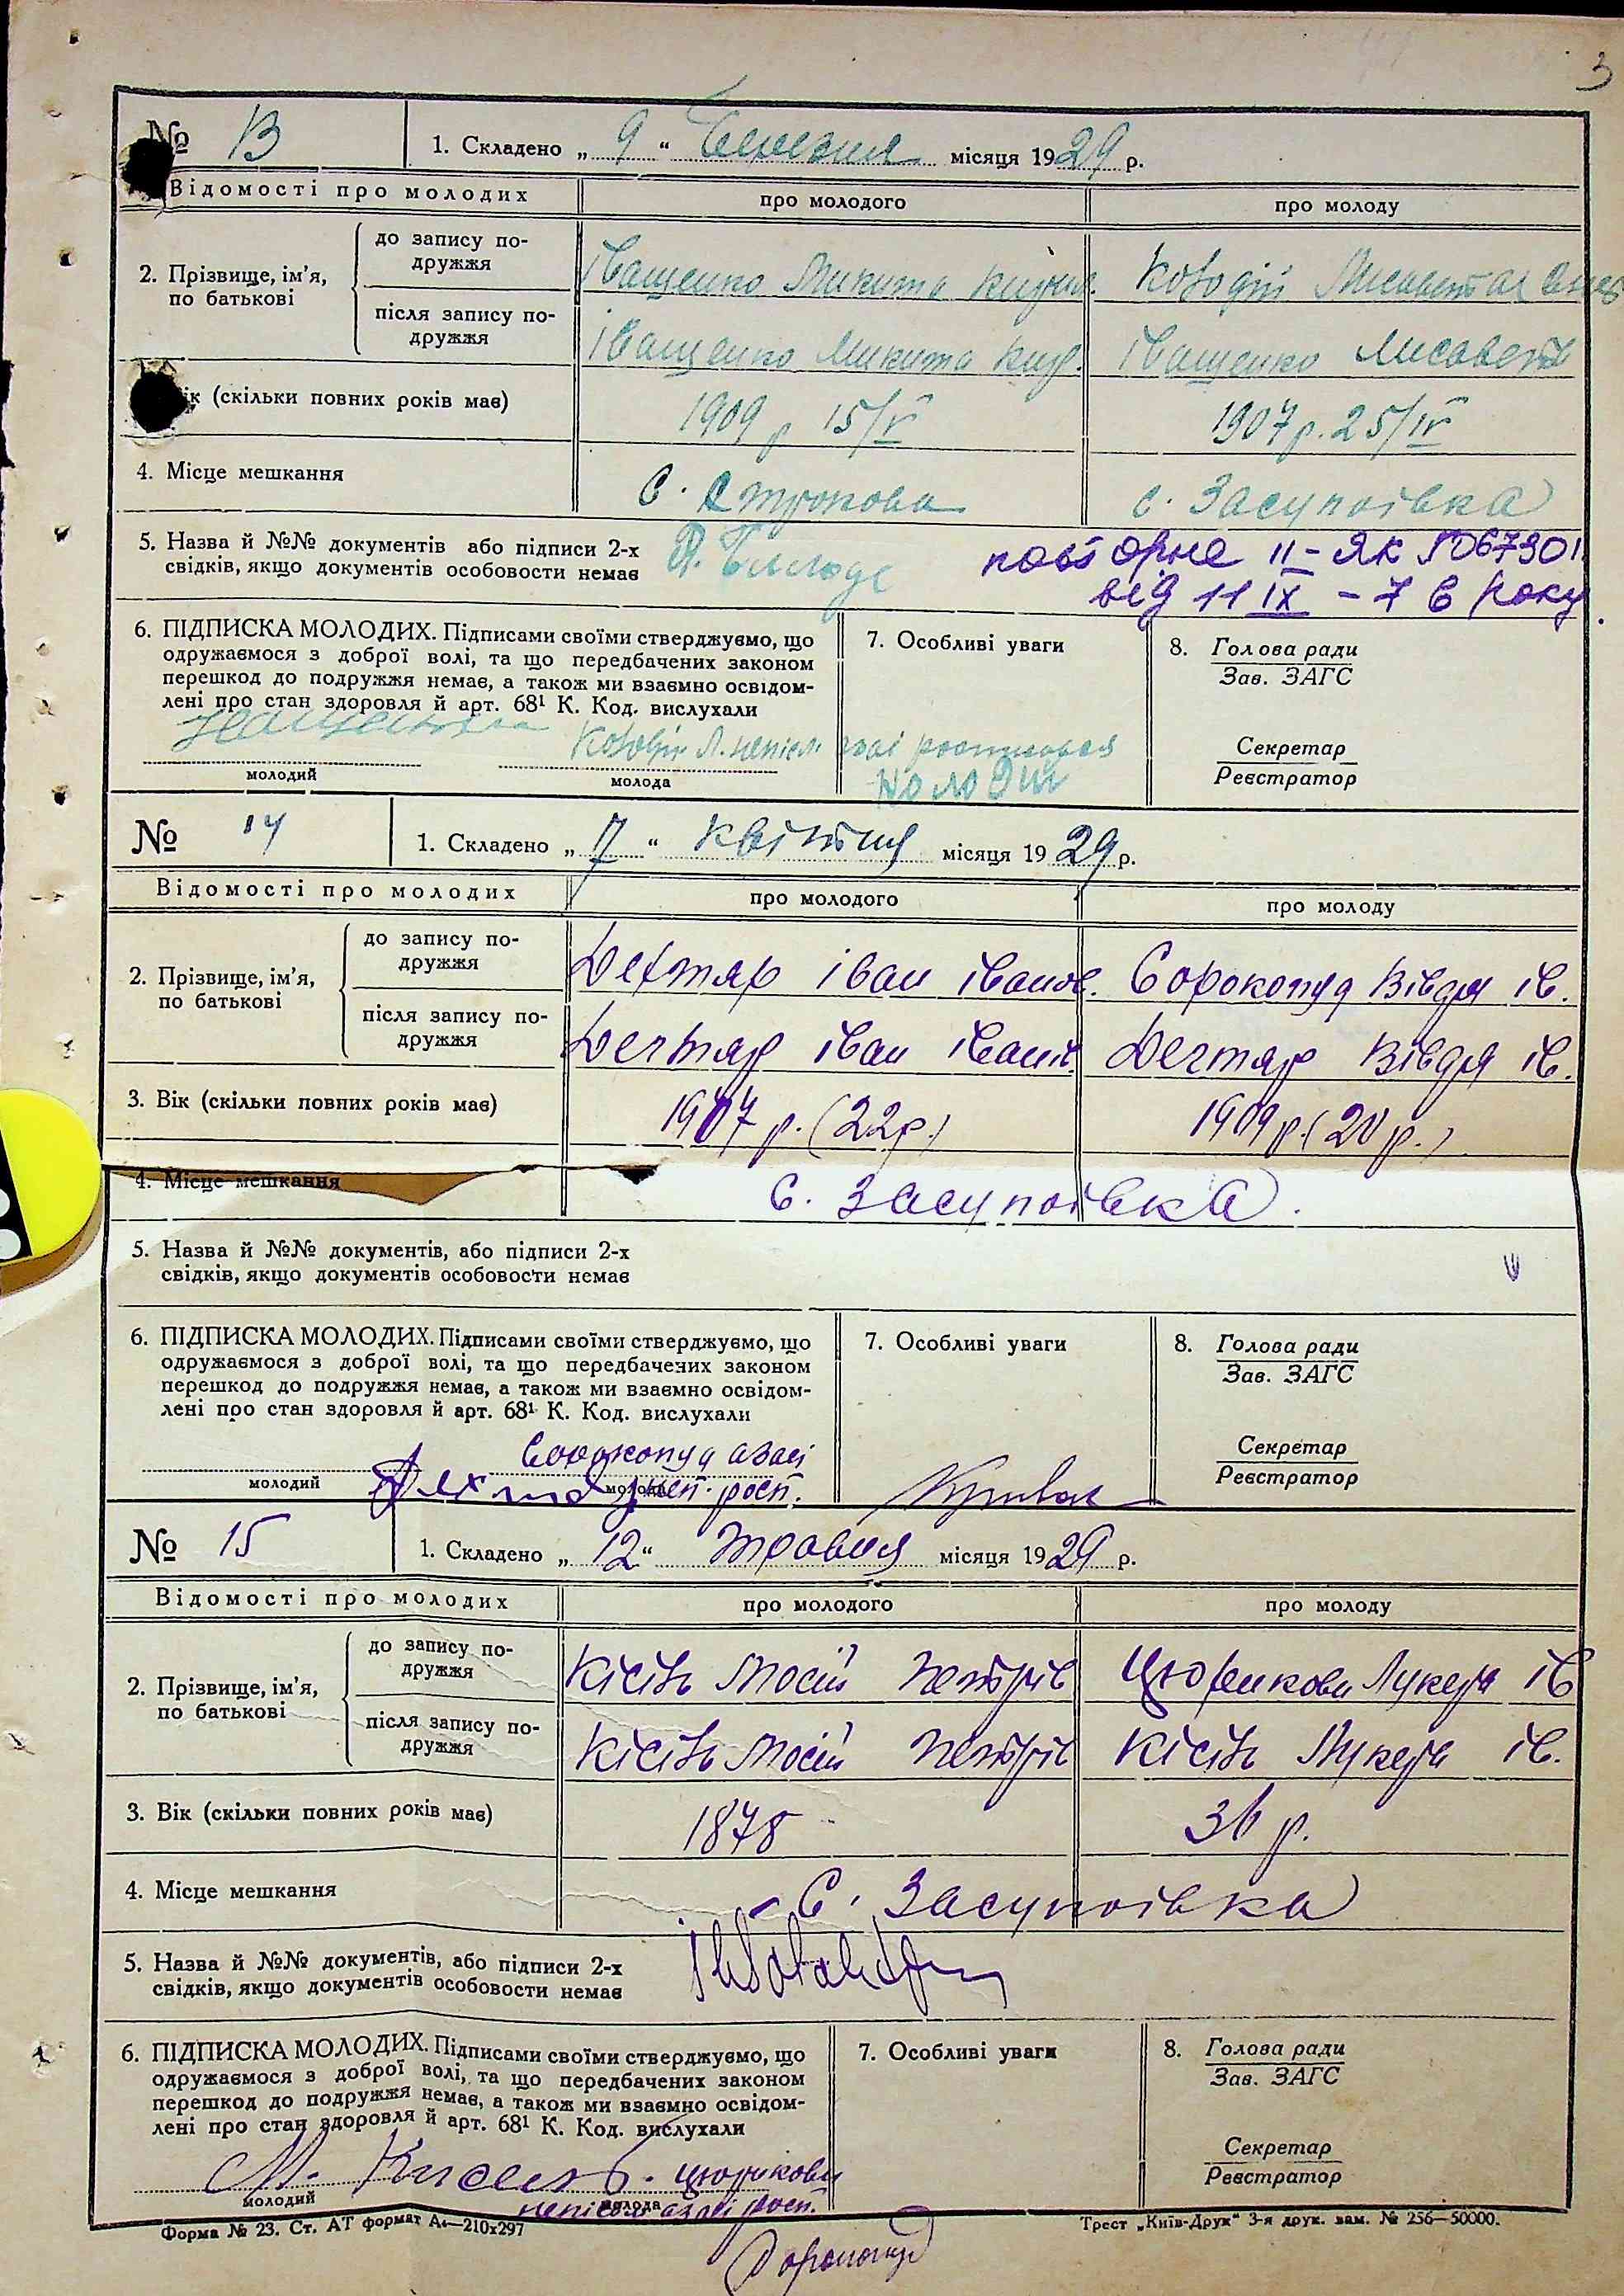 3
№ 13 1. Складено „ 9 “ Березня місяця 1929 р.
Відомості про молодих про молодого про молоду
2. Прізвище, ім'я, по батькові
до запису по-дружжя Іващенко Микита Кирил. Колодій Лисавета
після запису по-дружжя Іващенко Микита Кир. Іващенко Лисавета
ік (скільки повних років має) 1909 р 15/IV 1907 р. 25/IV
4. Місце мешкання с. с. Засупоївка
5. Назва й №№ документів або підписи 2-х
свідків, якщо документів особовости немає
повторне II-ЯК №067301
від 11 IX – 76 року.
6. ПІДПИСКА МОЛОДИХ. Підписами своїми стверджуємо, що
одружаємося з доброї волі, та що передбачених законом
перешкод до подружжя немає, а також ми взаємно освідом-
лені про стан здоровля й арт. 68¹ К. Код. вислухали
7. Особливі уваги
8. Голова ради
Зав. ЗАГС
Секретар
Реєстратор
Іващенко Колодій Л. неписм.
молодий молода
№ 14 1. Складено „ 7 “ квітня місяця 1929 р.
Відомості про молодих про молодого про молоду
2. Прізвище, ім'я, по батькові
до запису по-дружжя Дехтяр Іван Іванов. Сорокопуд Вівдя Ів.
після запису по-дружжя Дегтяр Іван Іванів. Дегтяр Вівдя Ів.
3. Вік (скільки повних років має) 1907 р. (22р.) 1909 р. (20 р.)
4. Місце мешкання с. Засупоївка.
5. Назва й №№ документів, або підписи 2-х
свідків, якщо документів особовости немає
6. ПІДПИСКА МОЛОДИХ. Підписами своїми стверджуємо, що
одружаємося з доброї волі, та що передбачених законом
перешкод до подружжя немає, а також ми взаємно освідом-
лені про стан здоровля й арт. 68¹ К. Код. вислухали
7. Особливі уваги
8. Голова ради
Зав. ЗАГС
Секретар
Реєстратор
Сорокопуд
молодий Дехтяр молода
№ 15 1. Складено „ 12 “ травня місяця 1929 р.
Відомості про молодих про молодого про молоду
2. Прізвище, ім'я, по батькові
до запису по-дружжя Кісіль Мосій Петрів Лукеря Ів
після запису по-дружжя Кісіль Мосій Петрів Кісіль Лукеря Ів.
3. Вік (скільки повних років має) 1878 36 р.
4. Місце мешкання с. Засупоївка
5. Назва й №№ документів, або підписи 2-х
свідків, якщо документів особовости немає
6. ПІДПИСКА МОЛОДИХ. Підписами своїми стверджуємо, що
одружаємося з доброї волі, та що передбачених законом
перешкод до подружжя немає, а також ми взаємно освідом-
лені про стан здоровля й арт. 68¹ К. Код. вислухали
7. Особливі уваги
8. Голова ради
Зав. ЗАГС
Секретар
Реєстратор
М. Кисель.
молодий молода
Форма № 23. Ст. АТ формат А₄—210х297
Трест „Київ-Друк“ 3-я друк. зам. № 256—50000.